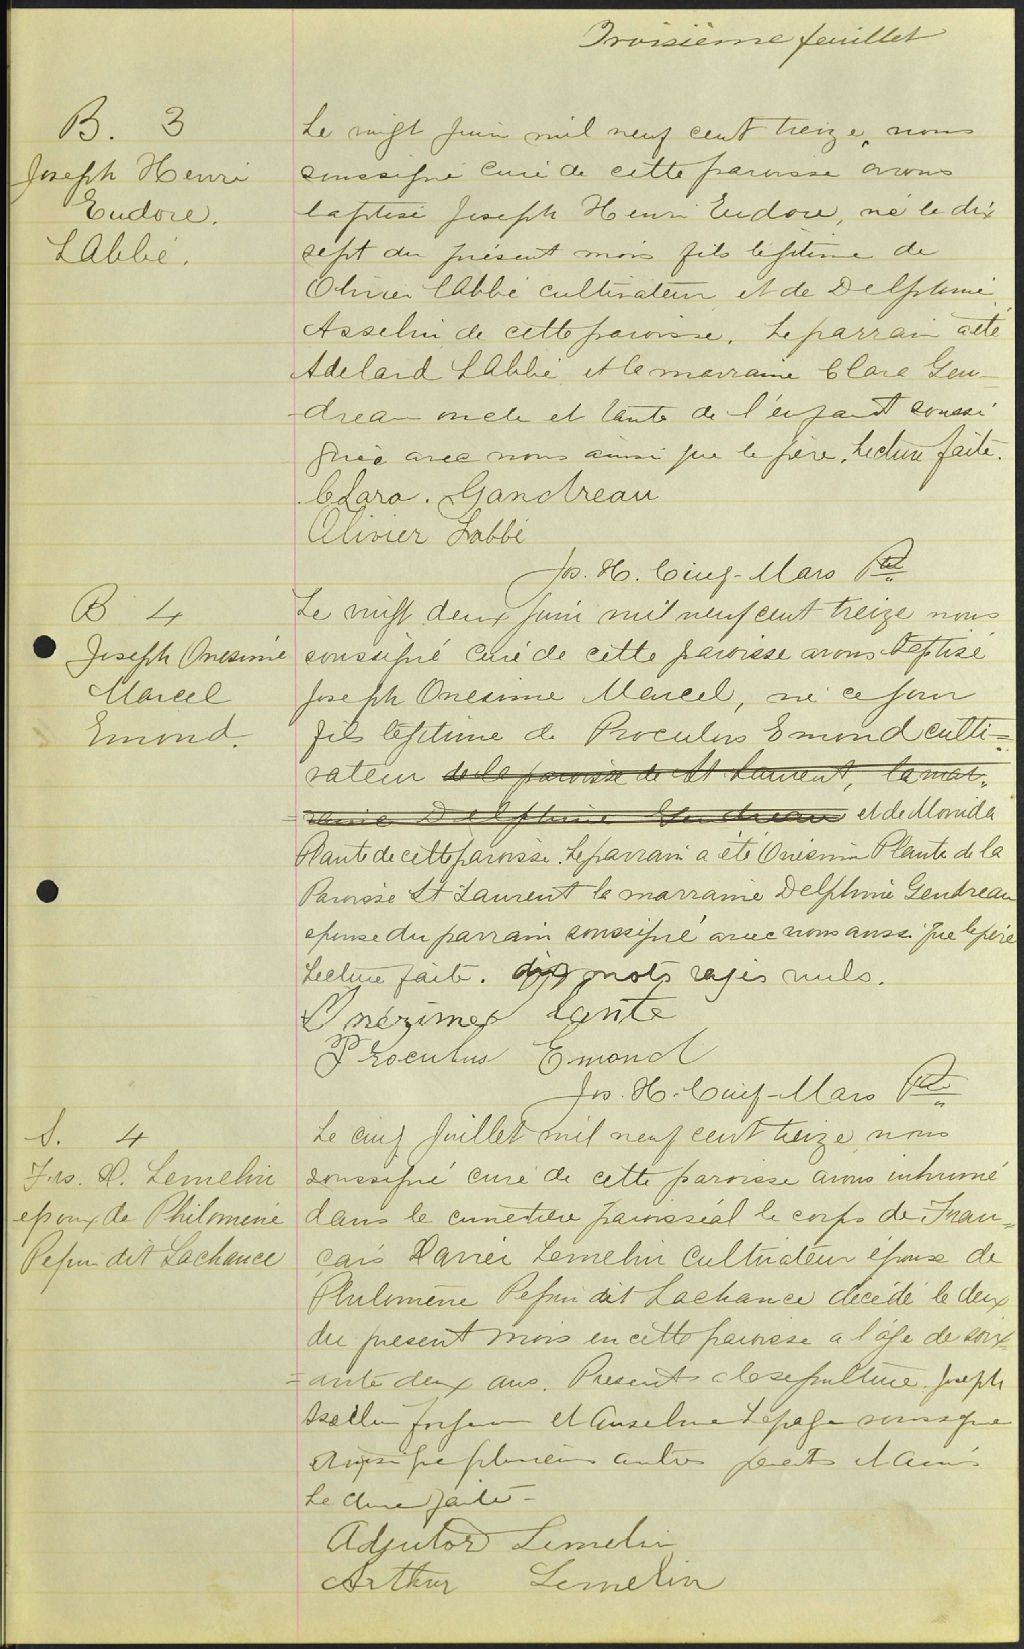 Troisième feuillet
B. 3
Joseph Henri
Eudore
LAbbé.
Le vingt Juin mil neuf cent treize, nous
soussigné curé de cette paroisse avons
baptisé Joseph Henri Eudore, né le dix
sept du présent mois fils légitime de
Olivier LAbbé cultivateur et de Delphine
Asselin de cette paroisse. Le parrain a été
Adelard LAbbé et la marraine Clara Gen-
dreau oncle et tante de l'enfant soussi
gnée avec nous ainsi que le père. Lecture faite.
Clara. Gandreau
Olivier Labbé
Jos. H. Cinq-Mars Ptre
B 4
Joseph Onesime
Marcel
Emond.
Le vingt deux Juin mil neuf cent treize nous
soussigné curé de cette paroisse avons baptisé
Joseph Onesime Marcel, né ce jour
fils légitime de Proculus Emond culti=
vateur de la paroisse de St Laurent, la mar=
=raine Delphine Gendreau et de Monida
Plante de cette paroisse. Le parrain a été Onésime Plante de la
Paroisse St Laurent la marraine Delphine Gendreau
epouse du parrain soussigné avec nous aussi que le père
Lecture faite. dix mots rayés nuls.
Onézime Plante
Proculus Emond
Jos. H. Cinq-Mars Ptre
S. 4
Frs. X. Lemelin
epoux de Philomène
Pepin dit Lachance
Le cinq Juillet mil neuf cent treize, nous
soussigné curé de cette paroisse avons inhumé
dans le cimetière paroissial le corps de Fran=
çois Xavier Lemelin cultivateur époux de
Philomène Pepin dit Lachance décédé le deux
du present mois en cette paroisse a l'âge de soix=
=ante deux ans. Présents a la sepulture. Joseph
Asselin forgeron et Anselme Lepage soussigné
ainsi que plusieurs autres parents et amis
Lecture faite-
Adjutor Lemelin
Arthur Lemelin